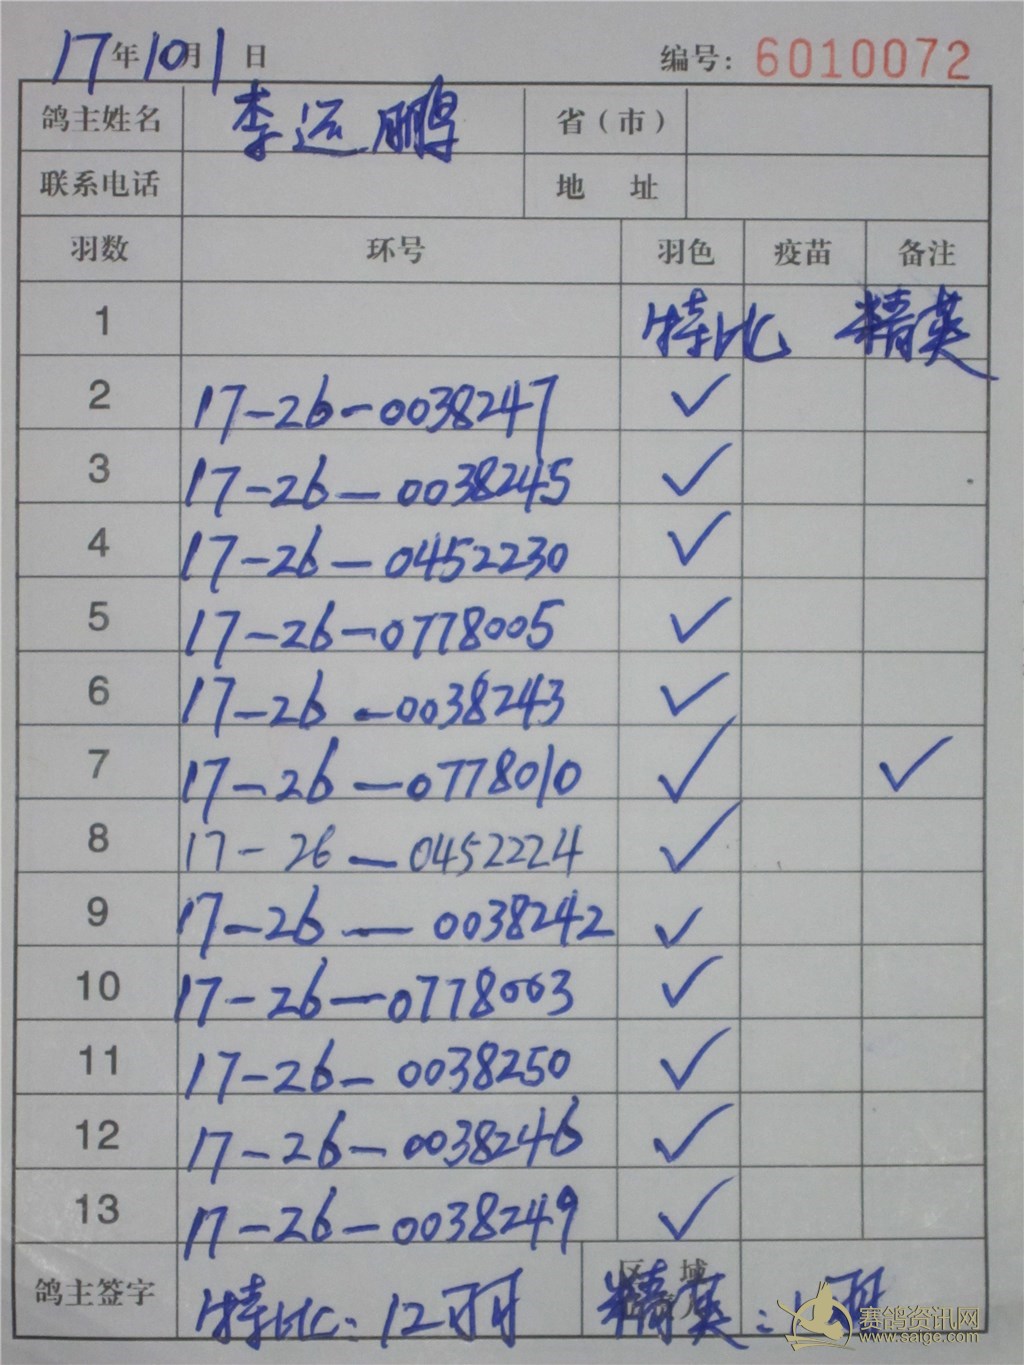 17年10月1日 编号: 6010072
鸽主姓名 李运鹏 省(市)
联系电话 地 址
羽数 环号 羽色 疫苗 备注
1 特比 精英
2 17-26-0038247 ✓
3 17-26-0038245 ✓
4 17-26-0452230 ✓
5 17-26-0778005 ✓
6 17-26-0038243 ✓
7 17-26-0778010 ✓ ✓
8 17-26-0452224 ✓
9 17-26-0038242 ✓
10 17-26-0778003 ✓
11 17-26-0038250 ✓
12 17-26-0038246 ✓
13 17-26-0038249 ✓
区 域
鸽主签字 特比: 12羽 精英: 羽
赛鸽资讯网
www.saige.com